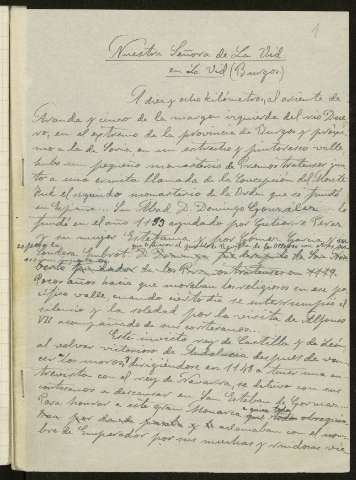 1
Nuestra Señora de La Vid
en La Vid (Burgos)
A diez y ocho kilómetros, al oriente de
Aranda y cerca de la margen izquierda del río Due-
ro, en el extremo de la provincia de Burgos y próxi-
mo a la de Soria en un estrecho y pintoresco valle
hubo un pequeño monasterio de Premostratenses jun-
to a una ermita llamada de la Concepción del Monte
Fué el segundo monasterio de la Orden que se fundó
en España. Su Abad D. Domingo González lo
fundó en el año 1133 ayudado por Gutierre Pérez
y su mujer Estefanía y por Gómez García su
D. Domingo
fundador de los Premostratenses en 1119.
Pocos años hacía que moraban los religiosos en ese pa-
cífico valle, cuando vióse interrumpido el
silencio y la soledad por la visita de Alfonso
VII acompañado de sus cortesanos.
Este invicto rey de Castilla y de León
al volver victorioso de Andalucía después de ven-
cer los moros dirigiéndose en 1140 a tener una en-
trevista con el rey de Navarra, se detuvo con sus
cortesanos a descansar en San Esteban de Gormaz.
Para honrar a este gran Monarca a quien todos obsequia-
ban por donde pasaba y le aclamaban con el nom-
bre de Emperador por sus muchas y ruidosas vic